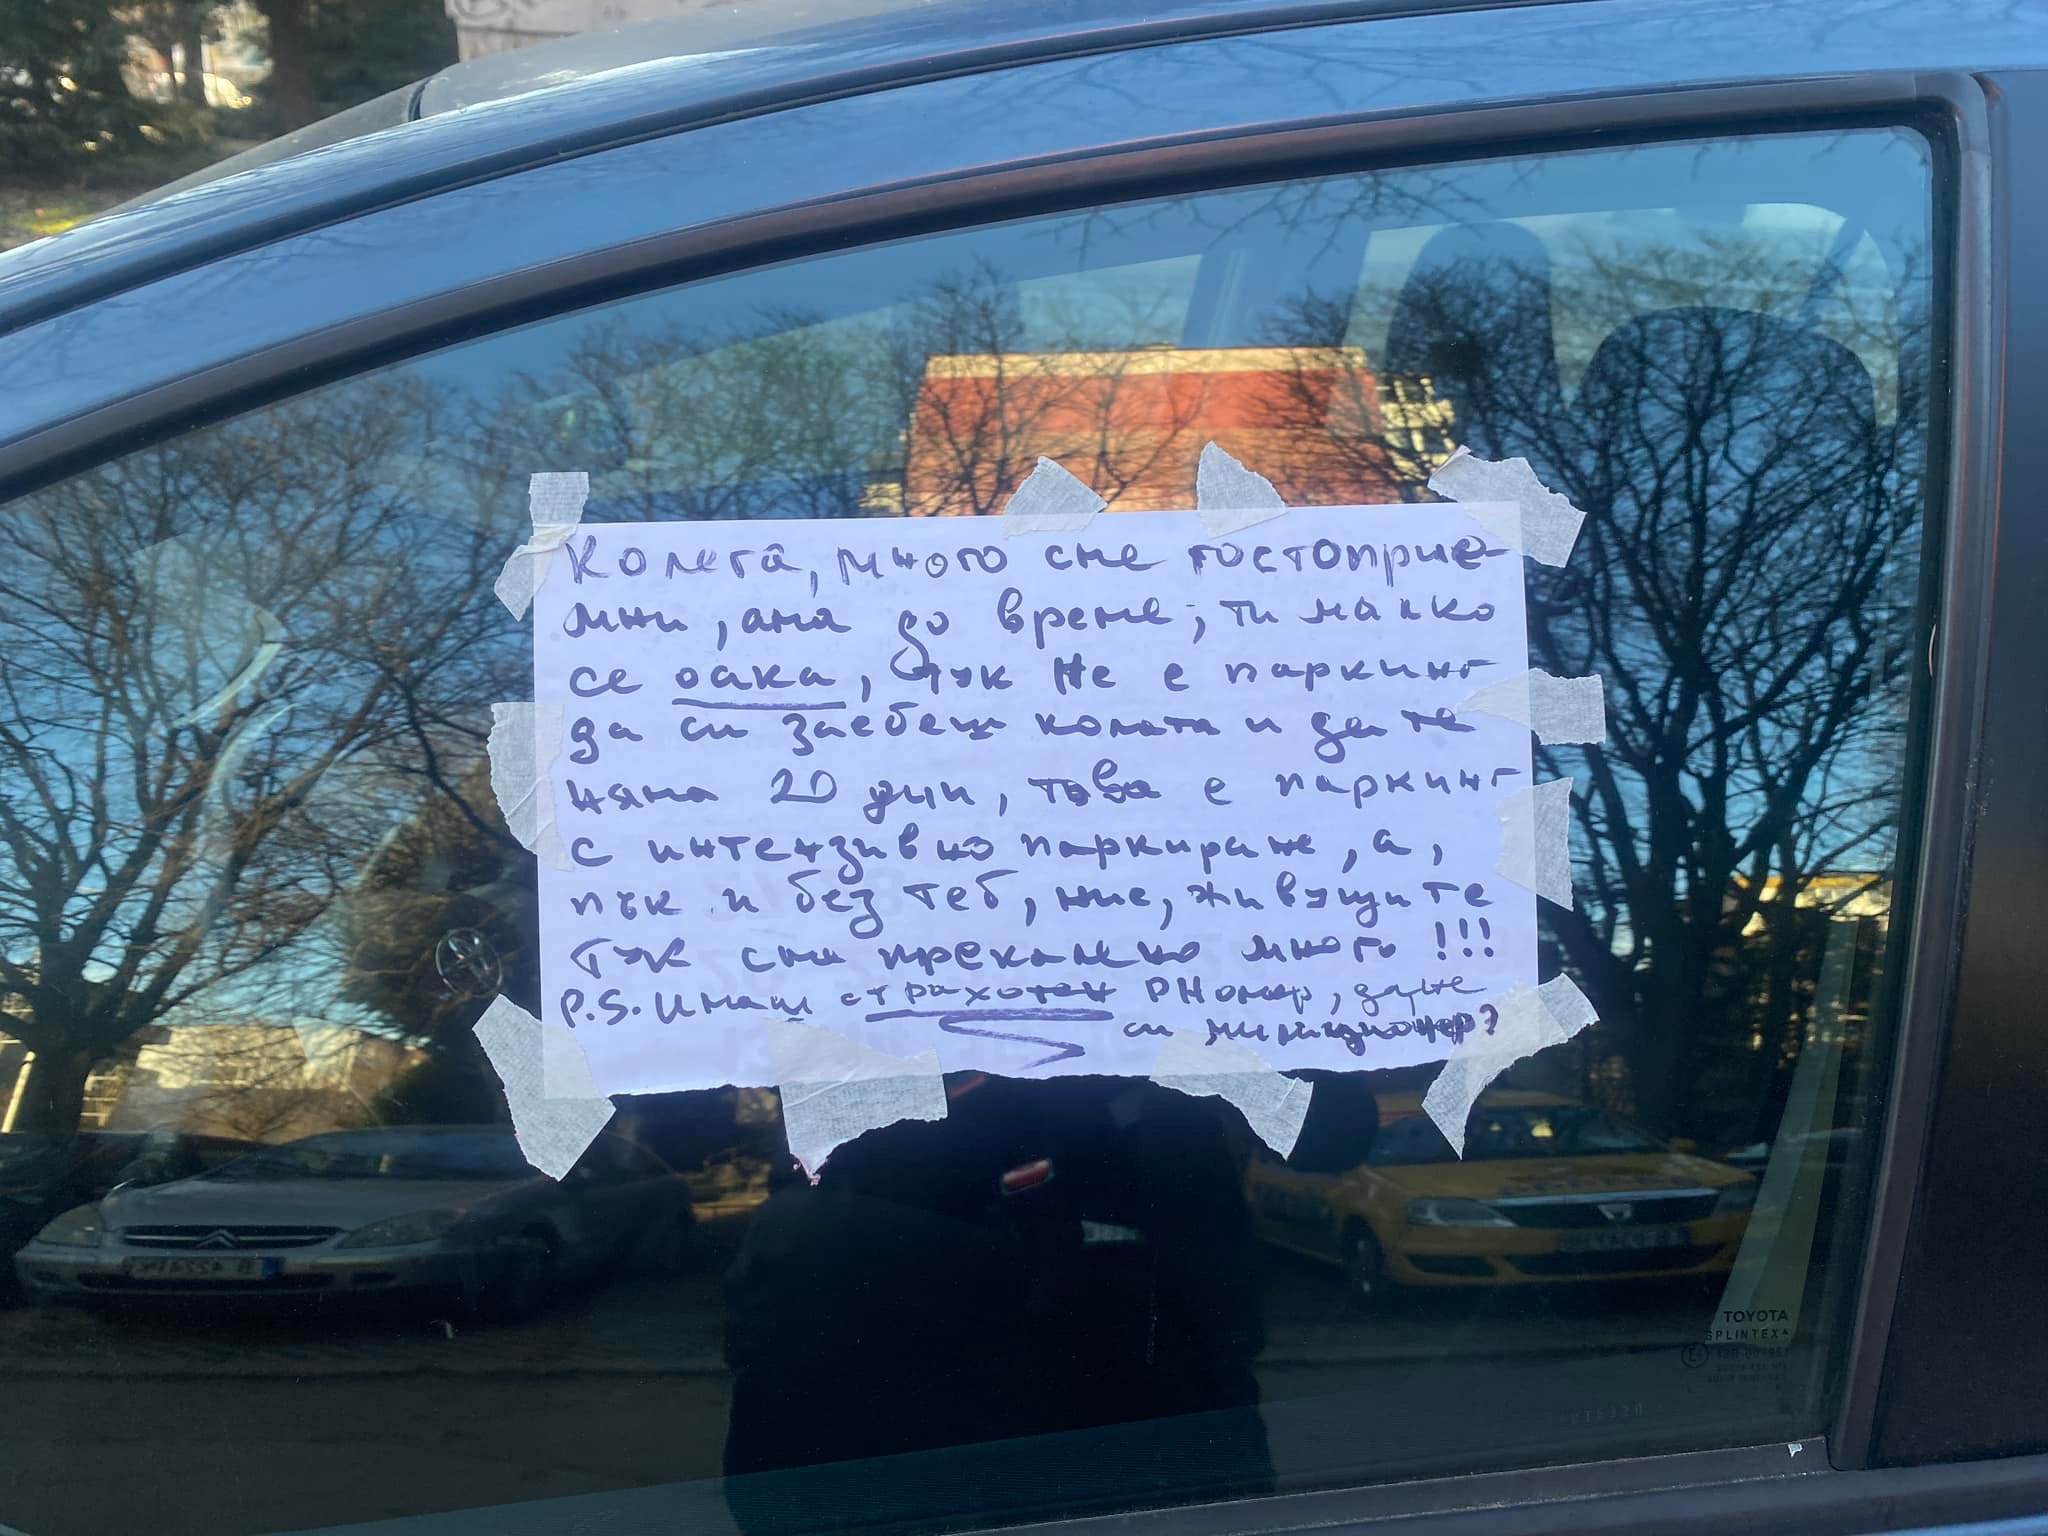 Колега, много сме гостоприе-
мни, ама до време, ти малко
се оака, тук не е паркинг
да си заебеш колата и да те
няма 20 дни, това е паркинг
с интензивно паркиране, а,
пък и без теб, ние, живущите
тук сме прекалено много!!!
P.S. Имаш страхотен PHомер, да не
си милиционер?
TOYOTA
SPLINTEX